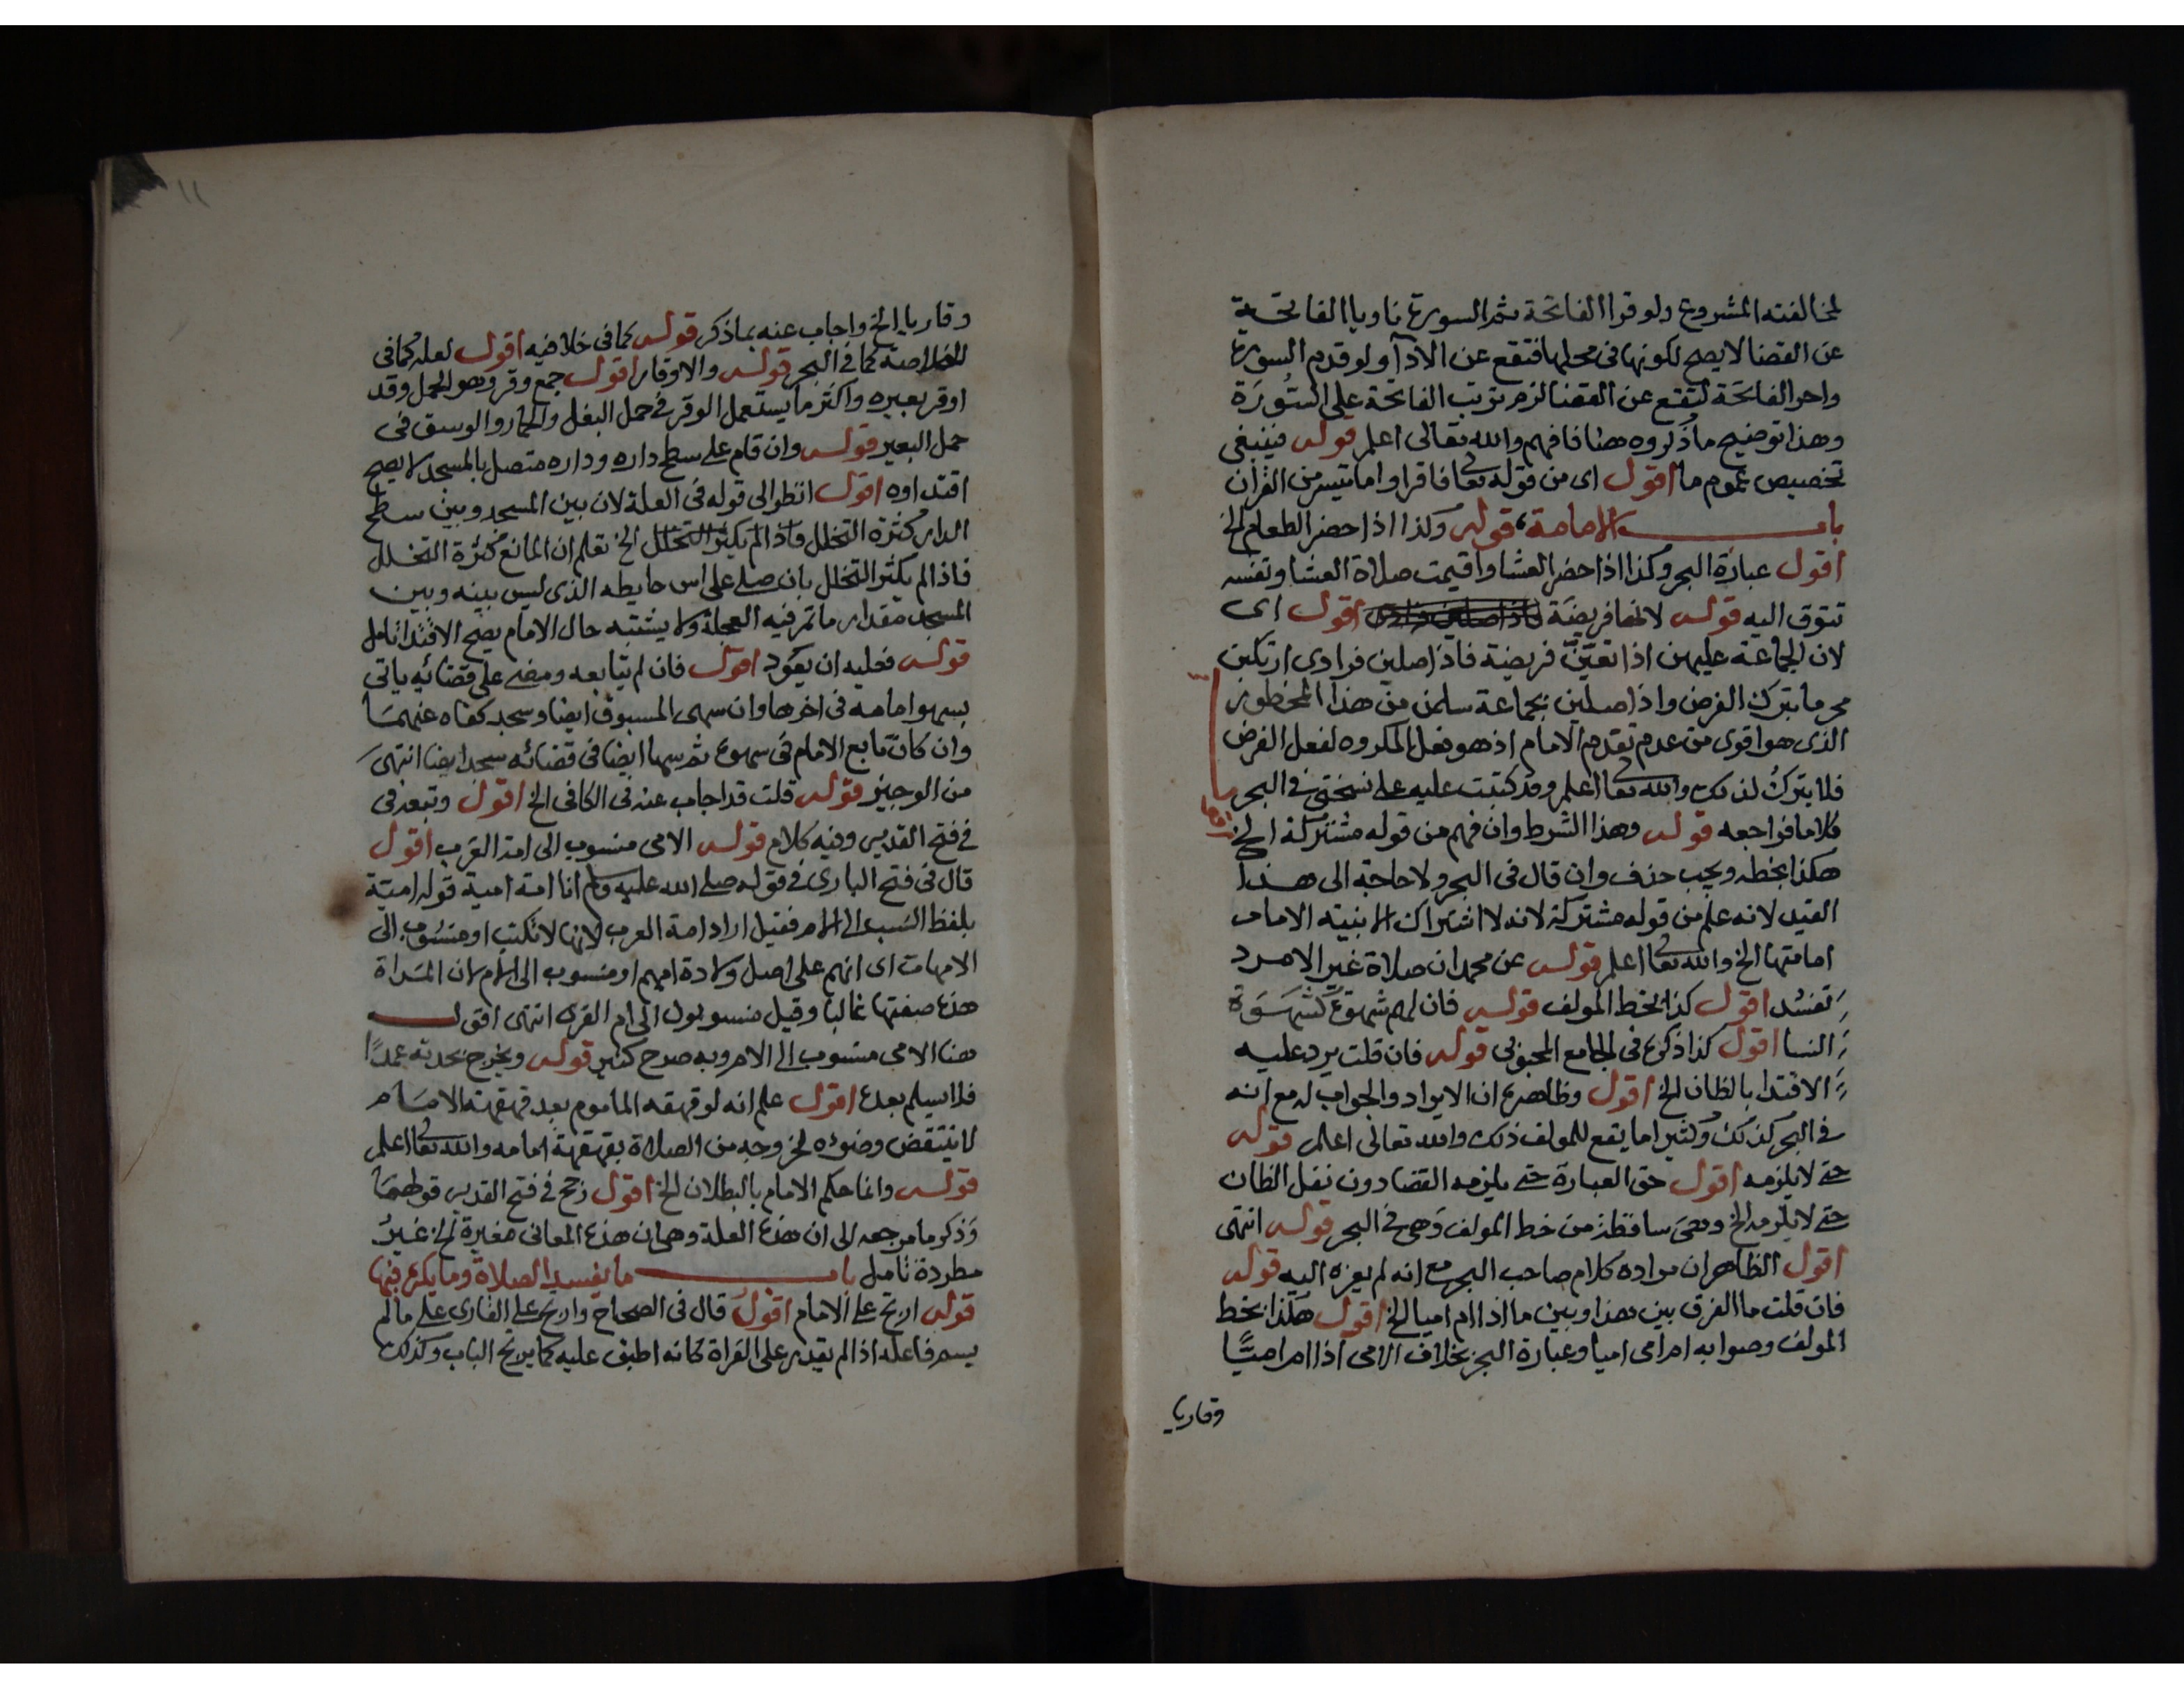 لمخالفته المشروع ولو قرا الفاتحة ثم السورة ناويا الفاتحة
عن القضا لا يصح لكونها في محلها فتقع عن الادآ ولو قدم السورة
واخر الفاتحة لتقع عن القضا لزم ترتب الفاتحة على السُورَة
وهذا توضيح ما ذكروه هنا فافهم والله تعالى اعلم قوله فينبغي
تخصيص عموم ما اقول اي من قوله تعا فاقراوا ما تيسر من القرآن
باب الامامة قوله وكذا اذا حضر الطعام الخ
اقول عبارة البحر وكذا اذا حضر العشا واقيمت صلاة العشا ونفسه
تتوق اليه قوله لانها فريضة اقول اي
لان الجماعة عليهن اذا تعيّن فريضة فاذا صلين فرادى ارتكبن
محرما بترك الفرض واذا صلين بجماعة سلمن من هذا المحظور
الذي هو اقوى من عدم تقدم الامام اذ هو فعل المكروه لفعل الفرض
فلا يترك لذلك والله تعا اعلم وقد كتبت عليه على نسختي في البحر
كلاما فراجعه قوله وهذا الشرط وان فهم من قوله مشتركة الخ
هكذا بخطه ويجب حذف وان قال في البحر ولا حاجة الى هذا
القيد لانه علم من قوله مشتركة لانه لا اشتراك الا بنية الامام
امامتها الخ والله تعا اعلم قوله عن محمد ان صلاة غير الامرد
تفسُد اقول كذا بخط المولف قوله فان لهم شهوة كشهوة
النسا اقول كذا ذكره في الجامع المحبوبي قوله فان قلت يرد عليه
الاقتدا بالظان الخ اقول وظاهره ان الايراد والجواب له مع انه
في البحر كذلك وكثيرا ما يقع للمولف ذلك والله تعالى اعلم قوله
حتى لا يلزمه اقول حق العبارة حتى يلزمه القضا دون نفل الظان
حتى لا يلزمه الخ وهي ساقطة من خط المولف وهي في البحر قوله انتهى
اقول الظاهر ان مراده كلام صاحب البحر مع انه لم يعزه اليه قوله
فان قلت ما الفرق بين هذا وبين ما اذا ام اميا الخ اقول هكذا بخط
المولف وصوابه ام امي اميا وعبارة البحر بخلاف الامي اذا ام اميًّا
وقاريا
١١
وقاريا الخ واجاب عنه بما ذكر قوله كما في خلافيه اقول لعله كما في
الخلاصة كما في البحر قوله والاوقار اقول جمع وقر وهو الحمل وقد
اوقر بعيره واكثر ما يستعمل الوقر في حمل البغل والحمار والوسق في
حمل البعير قوله وان قام على سطح داره وداره متصل بالمسجد لا يصح
اقتداوه اقول انظر الى قوله في العلة لان بين المسجد وبين سطح
الدار كثرة التخلل فاذا لم يكثر التخلل الخ تعلم ان المانع كثرة التخلل
فاذا لم يكثر التخلل بان صلى على راس حايطه الذي ليس بينه وبين
المسجد مقدار ما تمر فيه العجلة ولا يشتبه حال الامام يصح الاقتدا تامل
قوله فعليه ان يعود اقول فان لم يتابعه ومضى على قضائه ياتي
بسهو امامه في اخرها وان سهى المسبوق ايضا وسجد كفاه عنهما
وان كان تابع الامام في سهوه ثم سها ايضا في قضائه سجد ايضا انتهى
من الوجيز قوله قلت قد اجاب عنه في الكافي الخ اقول وتبعه في
في فتح القدير وفيه كلام قوله الامي منسوب الى امة العَرب اقول
قال في فتح الباري في قوله صلى الله عليه وسلم انا امة امية قوله امية
بلفظ النسب الى الام فقيل اراد امة العرب لانها لا تكتب او منسُوب الى
الامهات اى انهم على اصل ولادة امهم او منسوب الى الام لان المَراة
هذه صفتها غالبا وقيل منسوبون الى ام القرى انتهى اقول
هنا الامي منسوب الى الام وبه صرح كثير قوله ويخرج بحدثه عمدًا
فلا يسلم بعده اقول علم انه لو قهقه الماموم بعد قهقهة الامَام
لا ينتقض وضوءه لخروجه من الصلاة بقهقهة امامه والله تعا اعلم
قوله وانما حكم الامام بالبطلان الخ اقول رجح في فتح القدير قولهما
وَذكر ما مرجعه الى ان هذه العلة وهي ان هذه المعاني مغيرة الخ غيرُ
مطردة تامل باب ما يفسد الصلاة وما يكره فيها
قوله ارتج على الامام اقول قال في الصحاح وارتج على القارى على ما لم
يسم فاعله اذا لم يقدر على القراة كانه اطبق عليه كما يرتج الباب وكذلك